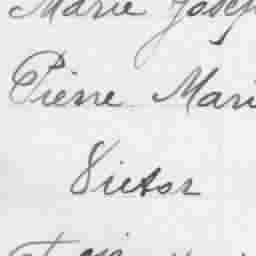 Marie Josep
Pierre Mari
Victor